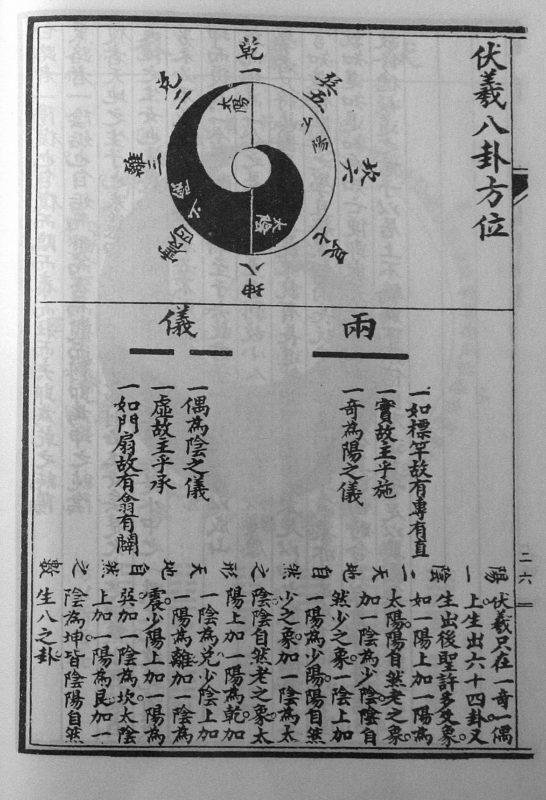 伏羲八卦方位
乾一
兌二
離三
震四
巽五
坎六
艮七
坤八
太陽
少陽
少陰
太陰
兩儀
一如標竿故有專有直
一實故主乎施
一奇為陽之儀
一偶為陰之儀
一虛故主乎承
一如門扇故有翕有闢
陽一陰二天地自然之形天地自然之數
伏羲只在一奇一偶
上生出六十四卦又
生出後聖許多爻象
如一陽上加一陽為
太陽陽自然老之象
加一陰為少陰陰自
然少之象一陰上加
一陽為少陽陽自然
少之象加一陰為太
陰陰自然老之象太
陽上加一陽為乾加
一陰為兌少陰上加
一陽為離加一陰為
震少陽上加一陽為
巽加一陰為坎太陰
上加一陽為艮加一
陰為坤皆陰陽自然
生八之卦
二六